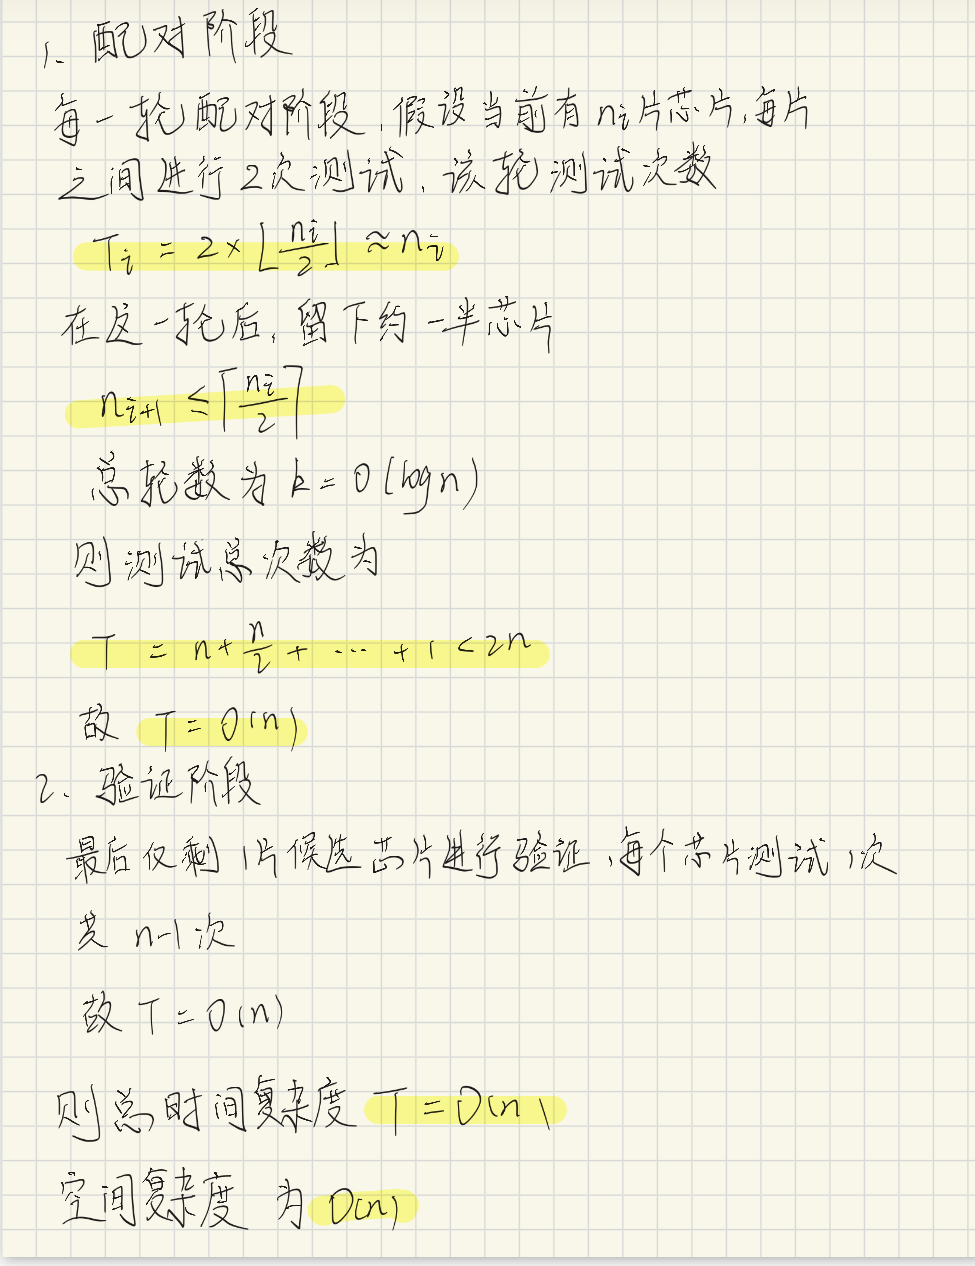 1. 配对阶段
每一轮配对阶段,假设当前有 nᵢ片芯片,每片
之间进行2次测试,该轮测试次数
Tᵢ = 2×⌊nᵢ/2⌋≈nᵢ
在这一轮后,留下约一半芯片
nᵢ₊₁ ≤⌈nᵢ/2⌉
总轮数为 k=O(logn)
则测试总次数为
T = n+n/2+ ··· +1<2n
故 T=O(n)
2. 验证阶段
最后仅剩1片候选芯片进行验证,每个芯片测试1次
共 n-1次
故 T=O(n)
则总时间复杂度 T=O(n)
空间复杂度 为 O(n)